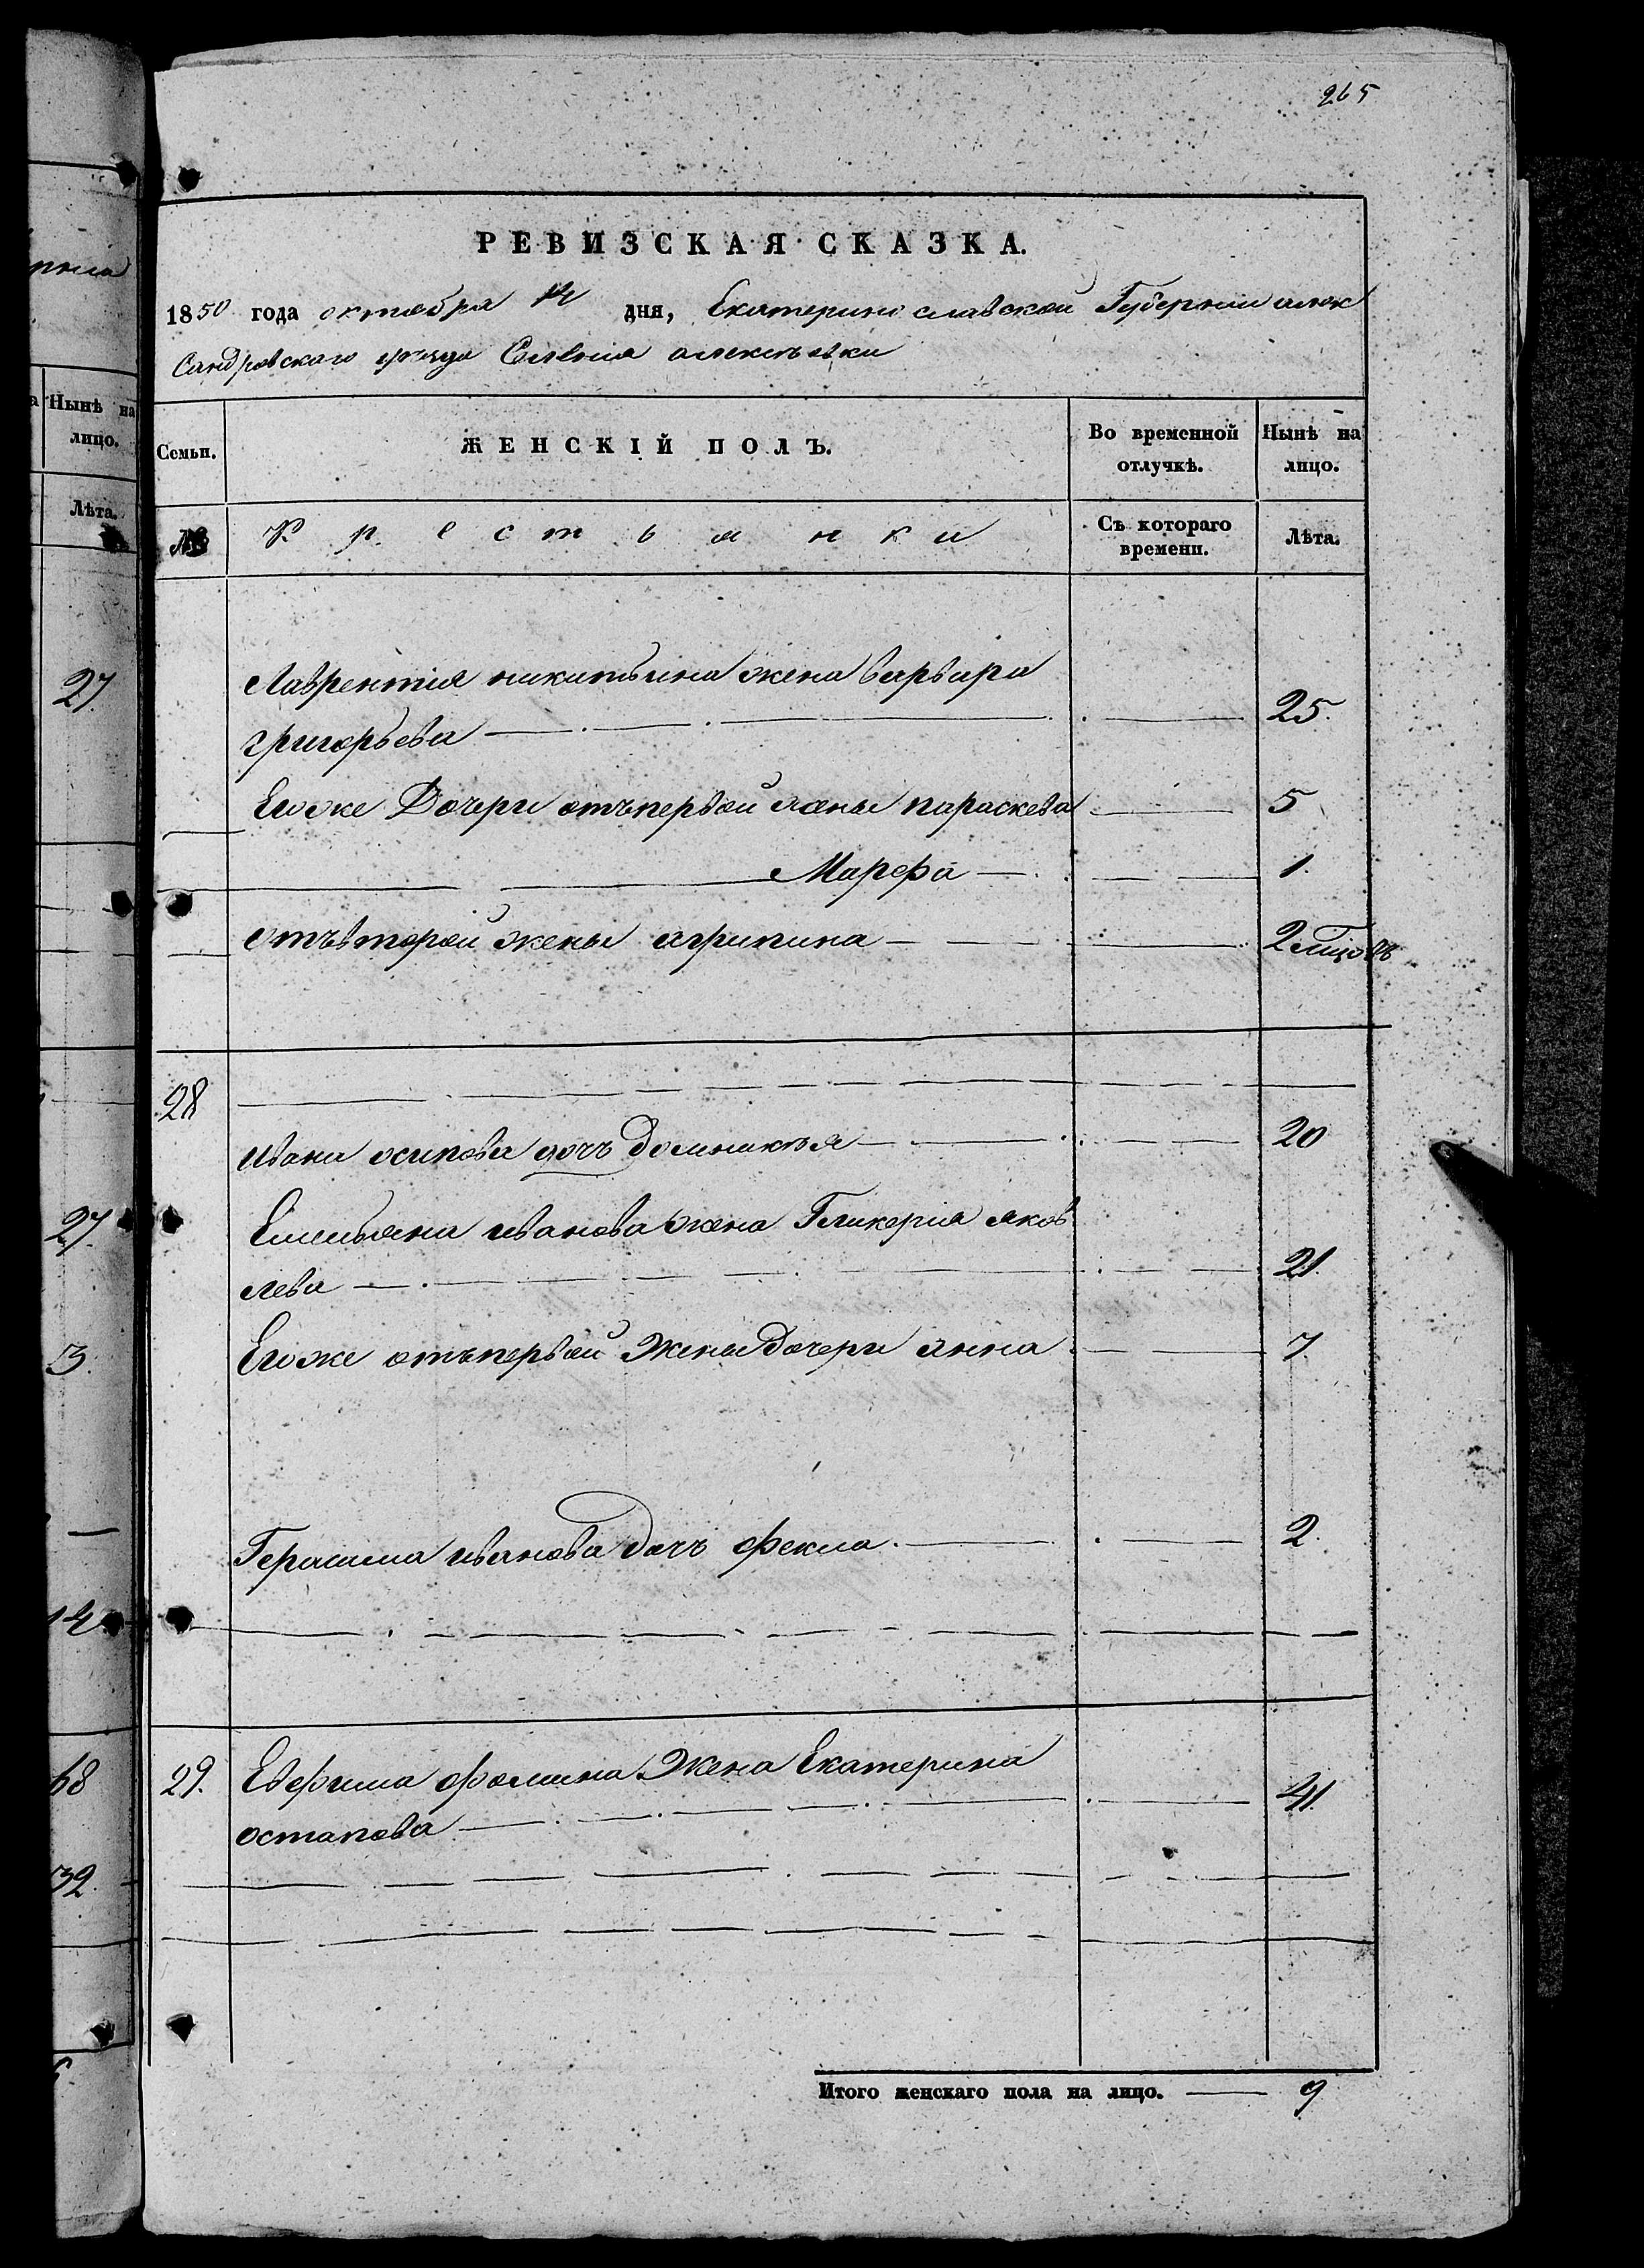 265
РЕВИЗСКАЯ СКАЗКА.
1850 года октября дня, Екатеринославской Губернии алек
сандровскаго уезда Селения алексѣевки
Семьи. ЖЕНСКІЙ ПОЛЪ. Во временной отлучкѣ. Нынѣ на лицо.
№ Крестьянки Съ котораго времени. Лѣта.
Лаврентия никитына жена варвара
григорьева 25.
Егоже Дочери отъпервой жены параскева 5
Марефа 1.
отъвторой жены агрипина 2
28
ивана осипова дочь Домникія 20
Емельяна иванова жена Гликерия яков
лева 21.
Егоже отъпервой Жены Дочери анна 7
Герасима иванова дочь фекла 2.
29. Евфима фомина Жена Екатерина
остапова 41.
Итого женскаго пола на лицо. 9
Нынѣ на
лицо.
Лѣта.
27
27
3.
14
68
32